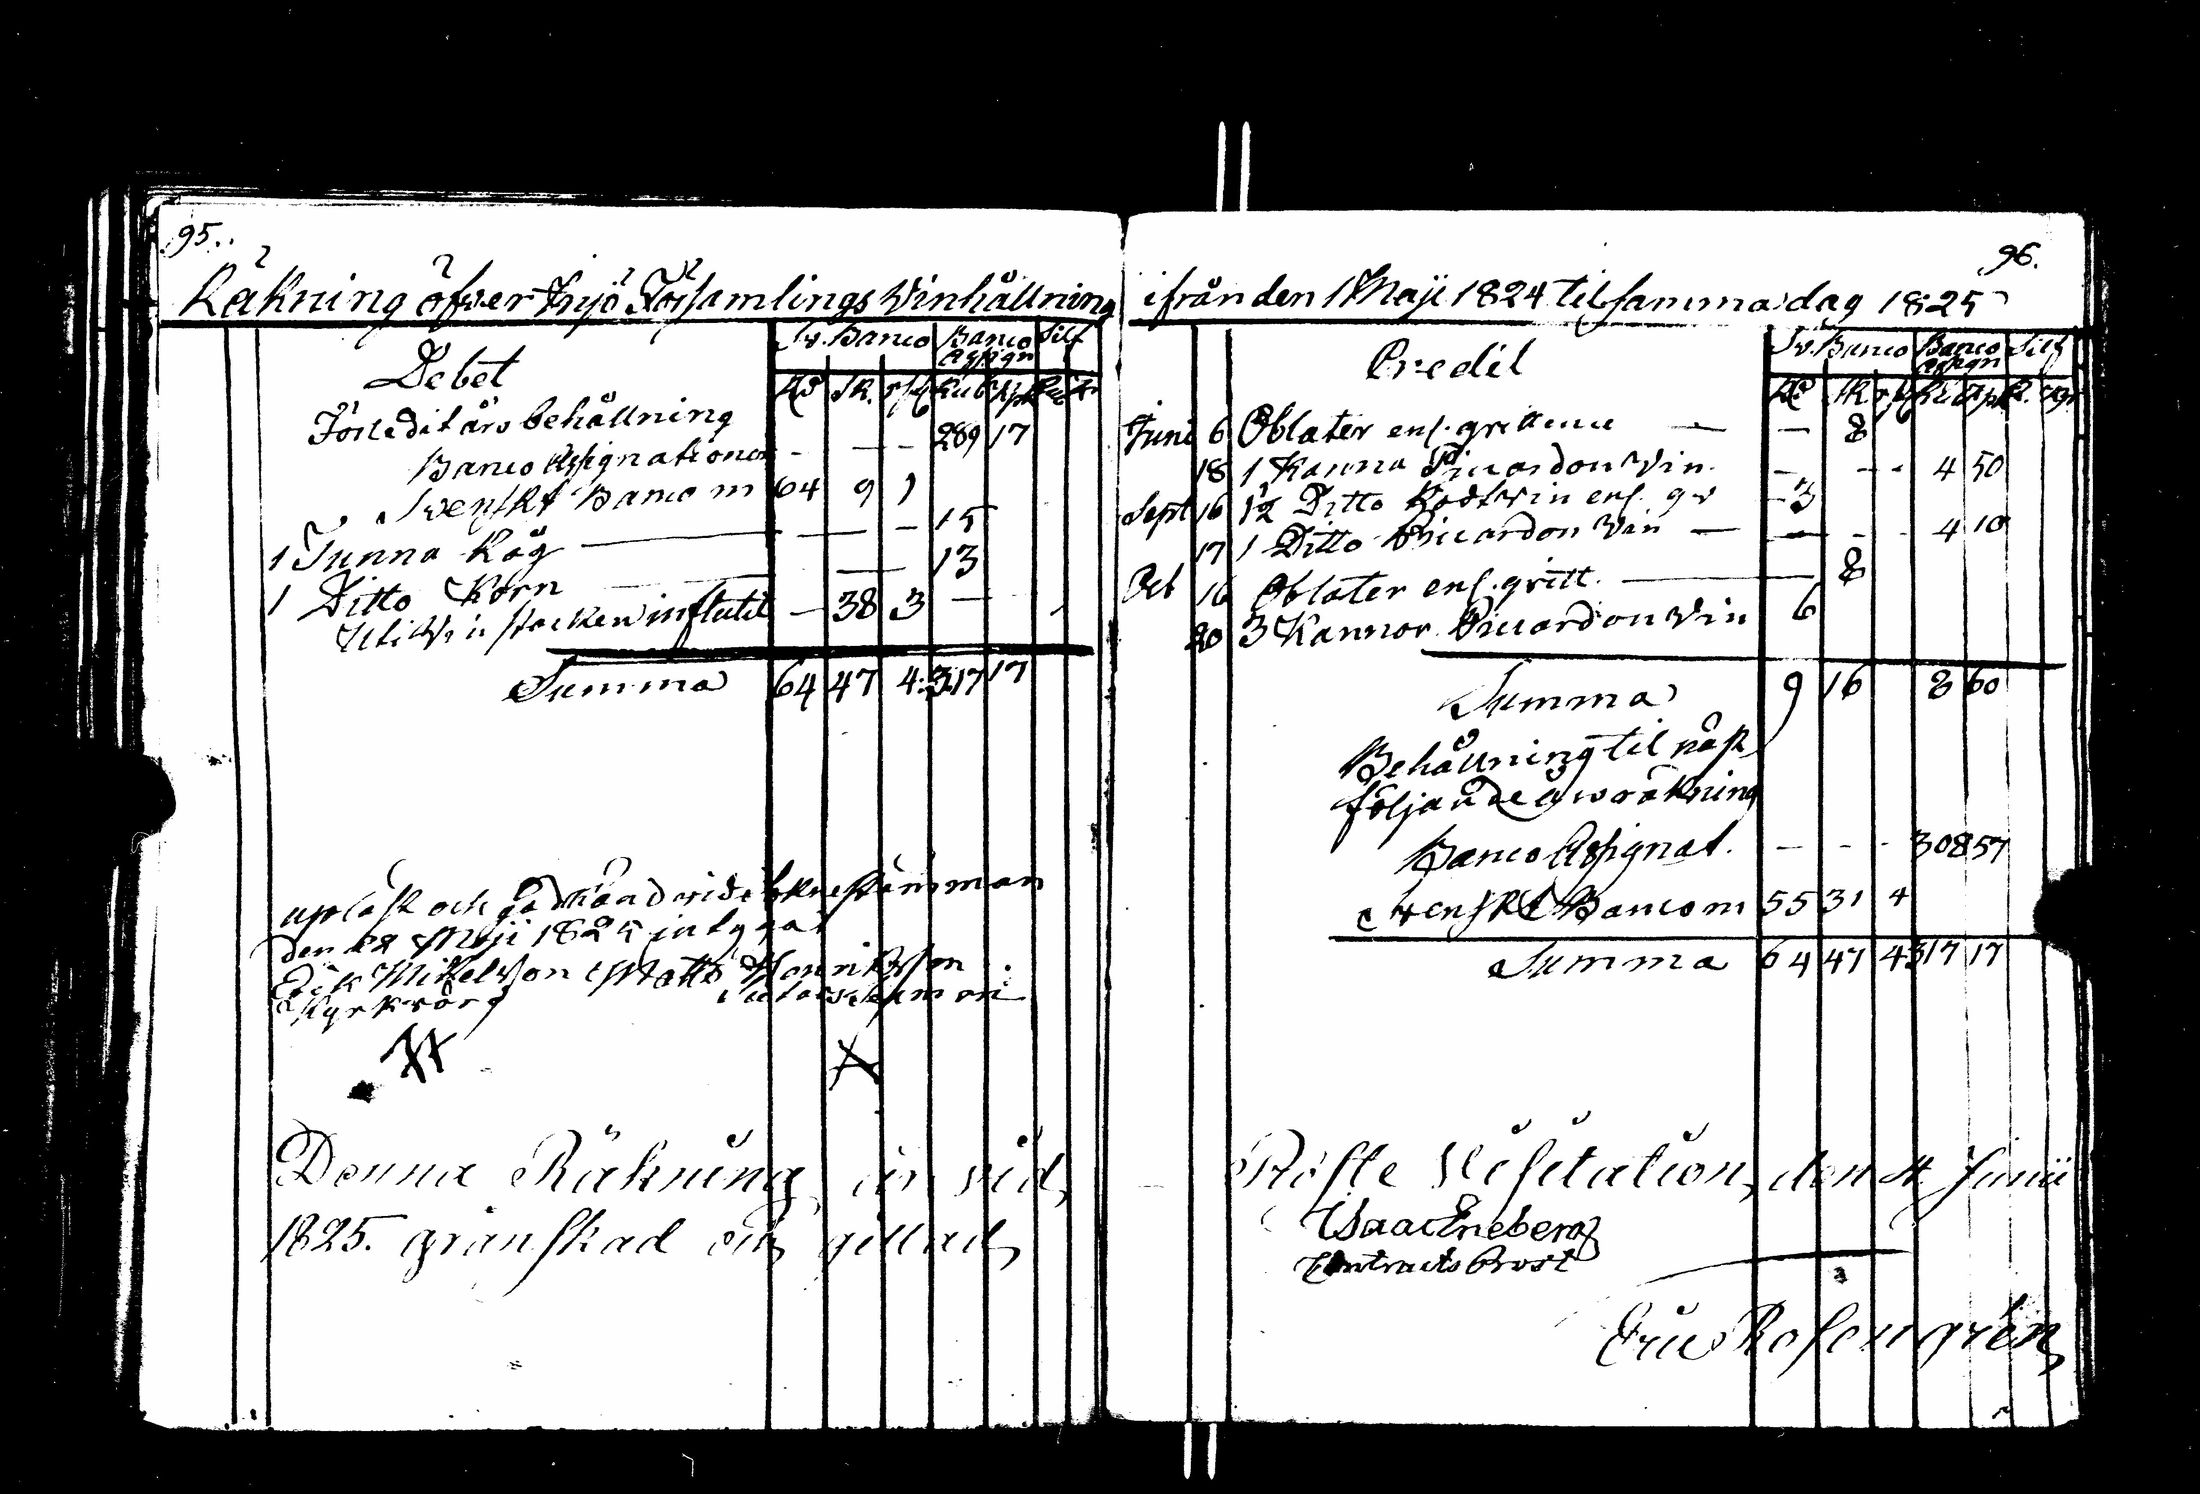 95.
Räkning öfver Insjö Församlings Vinhållning
Sv. Banco Banco Assign Silf
Debet
Rd sk. rst Rub kpk Rub k
Förledit års behållning
Banco Assignationer - - - 289 17
Svenskt Banco m 64 9 1
1 Tunna Råg - - - 15
1 Ditto Korn - - 13
Uti Vin stocken influtit - 38 3 -
Summa 64 47 4 317 17
upläst och godkänd vid sockne stämman
den Maji 1825 intygar
Erik Mikelsson Matts Henriksson
Kyrkvärd
Denna Räkning är vid
1825. granskad och gillad
96.
ifrån den 1 Maji 1824 til samma dag 1825
Sv. Banco Banco Assign Silf
Credit
Rd sk rst Ru kpk R. kp
Juni 6 Oblater enl. qvittence - - 8
18 1 Kanna Piccardon Vin. - - - 4 50
Sept 16 1½ Ditto Rödt Vin enl. qv - 3
17 1 Ditto Piccardon Vin - - - - 4 10
Oct 16 Oblater enl. qvitt. - 8
20 3 Kannor Piccardon Vin 6
Summa 9 16 8 60
Behållning til näst
följande års räkning
Banco Assignat. - - - 308 57
Svenskt Banco m 55 31 4
Summa 64 47 4 317 17
Proste Visitation, den 4 Junii
Isaac Eneberg
Contracts Prost
Eric Rosengrén